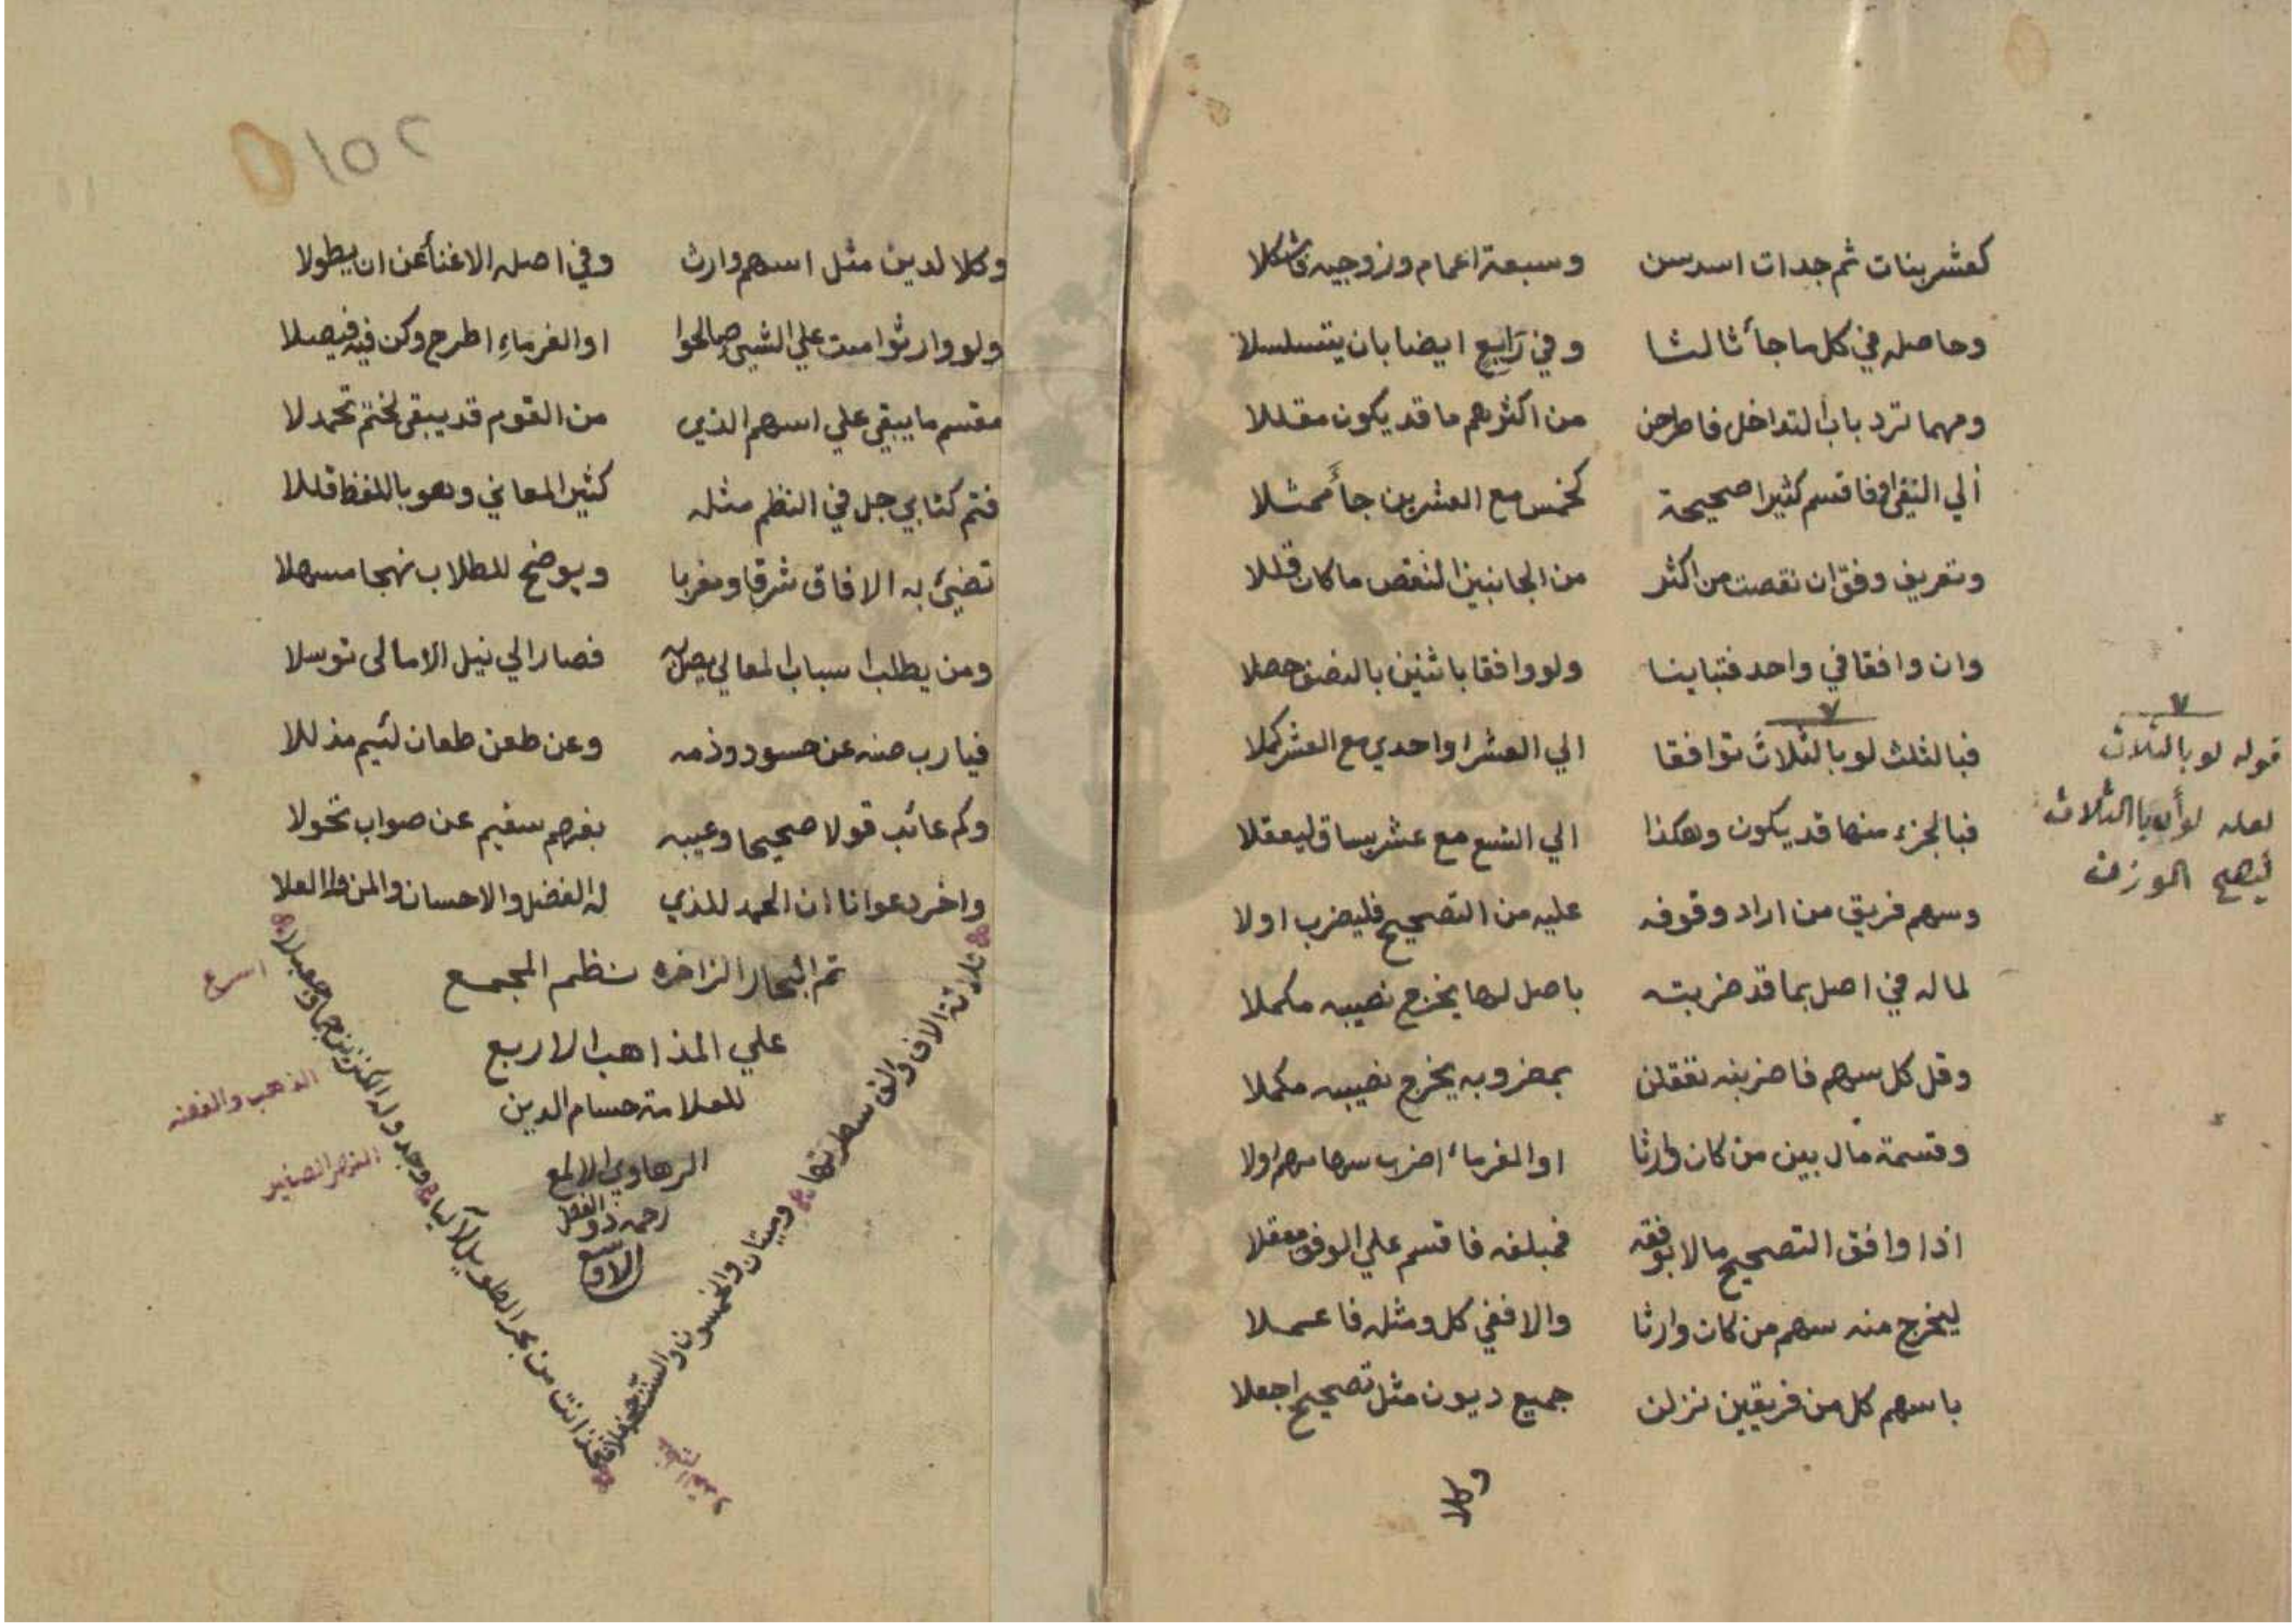 كعشر بنات ثم جدات اسدسن وسبعة اعمام وزوجيه فاشكلا
وحاصله في كل ما جأ ثالثا وفي رابع ايضا بان يتسلسلا
ومهما ترد باب التداخل فاطرحن من اكثرهم ما قد يكون مقللا
الي النفي او فاقسم كثيرا صحيحة كخمس مع العشرين جأ ممثلا
وتعريف وفق ان نقصت من اكثر من الجانبين النقص ما كان قللا
وان وافقا في واحد فتباينا ولو وافقا باثنين بالنصف حصلا
فبالثلث لو بالثلاث توافقا الي العشر او احدي مع العشر كملا
فبالجزء منها قد يكون وهكذا الي التسع مع عشر يساق ليعقلا
وسهم فريق من اراد وقوفه عليه من التصحيح فليضرب اولا
لما له في اصل بما قد ضربته باصل لها يخرج نصيبه مكملا
وقل كل سهم فاضربنه تفقلن بمضروبه يخرج نصيبه مكملا
وقسمة مال بين من كان وارثا او الغرماء اضرب سهامهم اولا
اذا وافق التصحيح مالا بوفقه فمبلغه فاقسم علي الوفق معقلا
ليخرج منه سهم من كان وارثا والا ففي كل ومثله فاعملا
باسهم كل من فريقين نزلن جميع ديون مثل تصحيح اجعلا
وكلا
٧
قوله لو بالثلاث
لعله لو أن بالثلاث
ليصح الوزن
١٥٢
وكلا لدين مثل اسهم وارث وفي اصله الاغنأ عن ان يطولا
ولو وارثوا ميت علي الشيئ صالحوا او الغرماء اطرح وكن فيه فيصلا
مقسم ما يبقي علي اسهم الذي من القوم قد يبقي لختم تحمدلا
فتم كتابي جل في النظم مثله كثير المعاني وهو باللفظ قللا
تضيئ به الافاق شرقا ومغربا ويوضح للطلاب نهجا مسهلا
ومن يطلب اسباب المعالي يصل به فصار الي نيل الامالي توسلا
فيا رب صنه عن حسود وذمه وعن طعن طعان لئيم مذللا
وكم عائب قولا صحيحا وعيبه بفهم سقيم عن صواب تحولا
واخر دعوانا ان الحمد للذي له الفضل والاحسان والمن والعلا
تم البحار الزاخره بنظم المجمع
علي المذاهب الاربع
للعلامة حسام الدين
الرهاوي الالمع
رحمه ذو الفضل
الاوسع
ثلاثة الاف والف سطرتها وميتان والخمسون والست
فخذ انت من بحر الطويل لآليا وجدوله الكنزين
اسرع
الذهب والفضه
النهر الصغير